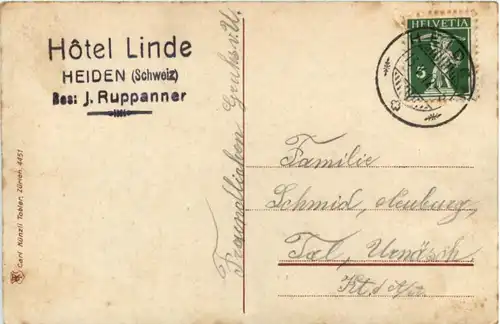 Hôtel Linde
HEIDEN (Schweiz)
Bes: J. Ruppanner
HELVETIA
5
Familie
Schmid, Neuburg,
Tal, Urnäsch.
Kt.
Carl Künzli Tobler, Zürich. 4451